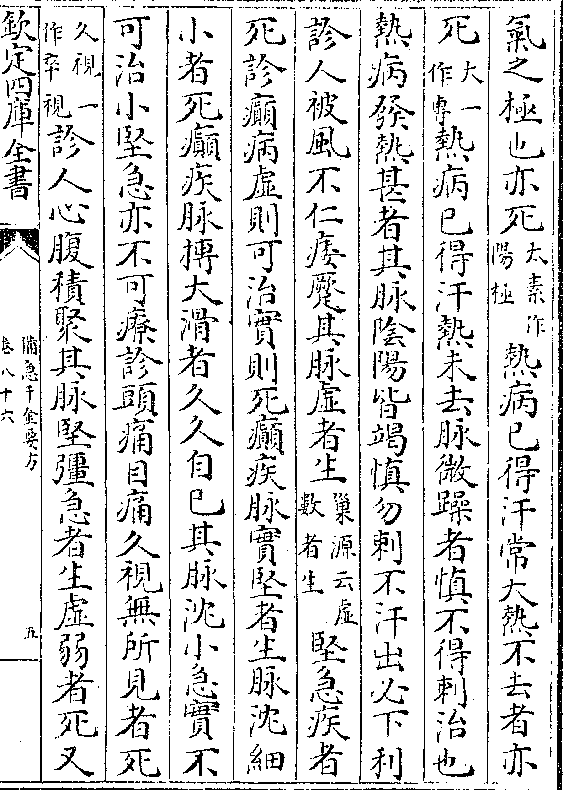 氣之極也亦死太素作陽極熱病已得汗常大熱不去者亦
死大一作專熱病已得汗熱未去脉微躁者慎不得刺治也
熱病發熱甚者其脉陰陽皆竭慎勿刺不汗出必下利
診人被風不仁痿蹷其脉虛者生巢源云虛數者生堅急疾者
死診癲病虛則可治實則死癲疾脉實堅者生脉沈細
小者死癲疾脉搏大滑者久久自已其脉沈小急實不
可治小堅急亦不可療診頭痛目痛久視無所見者死
久視一作卒視診人心腹積聚其脉堅彊急者生虛弱者死又
欽定四庫全書
備急千金要方
卷八十六
五